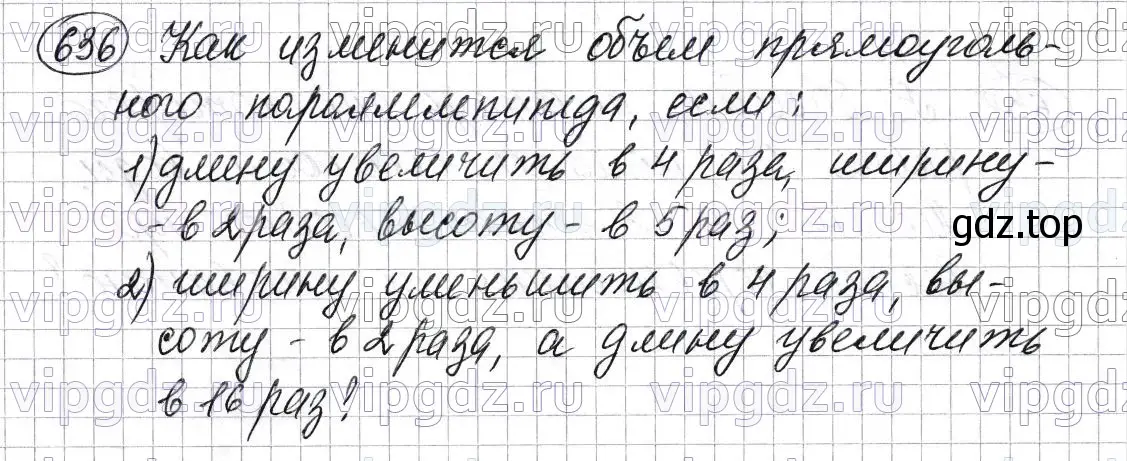 636 Как изменится объем прямоуголь-
ного параллепипеда, если:
1) длину увеличить в 4 раза, ширину -
- в 2 раза, высоту - в 5 раз;
gdz.top
2) ширину уменьшить в 4 раза, вы-
соту - в 2 раза, а длину увеличить
в 16 раз!
vipgdz.ru